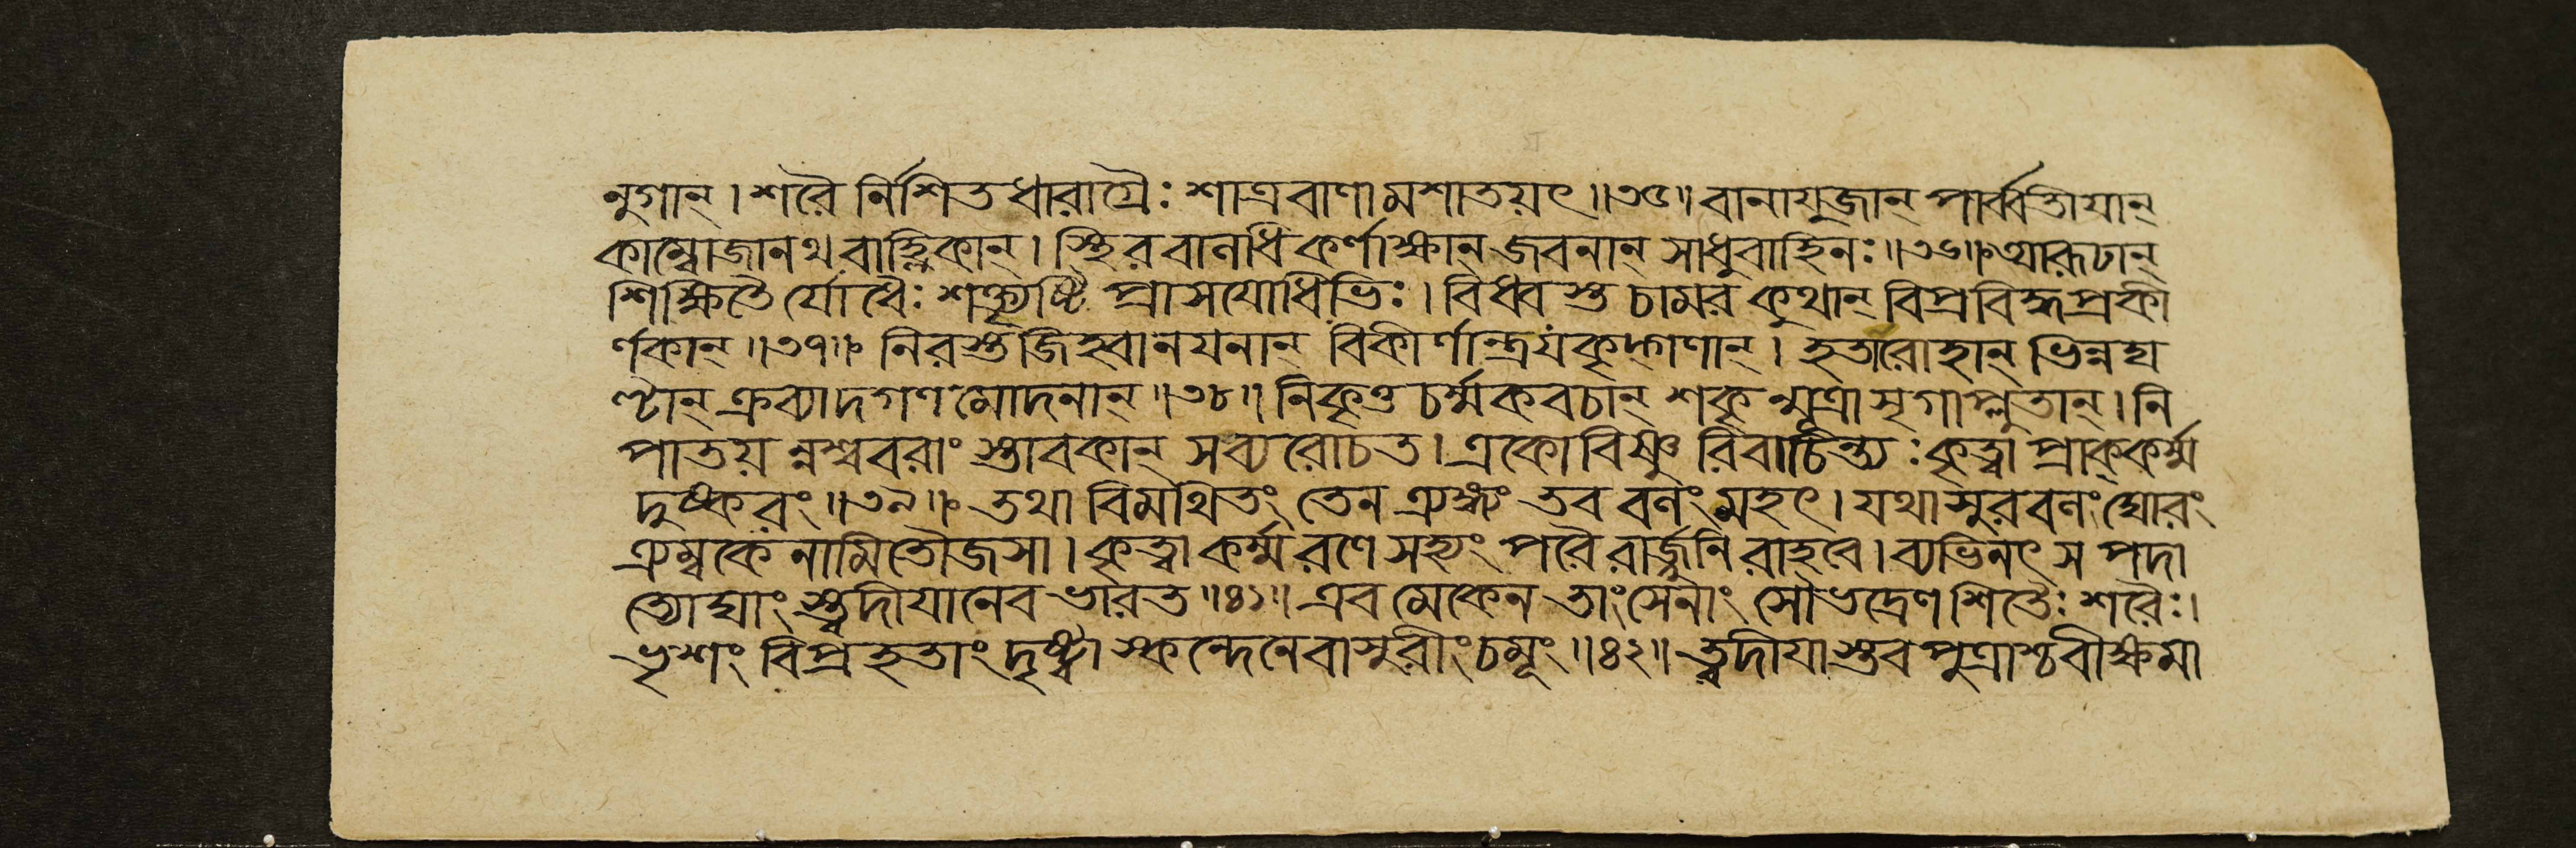 নুগান্ । শরৈ র্নিশিতধারাগ্রৈঃ শাত্রবাণামশাতয়ৎ ॥৩৫॥ বানাযুজান্ পার্ব্বতীযান্
কাম্বোজানথ বাহ্লিকান্ । স্থিরবালধিকর্ণাক্ষান্ জবনান্ সাধুবাহিনঃ ॥৩৬॥ আরূঢান্
শিক্ষিতৈ র্যোধৈঃ শক্ত্যৃষ্টি প্রাসযোধিভিঃ । বিধ্বস্তচামরকুথান্ বিপ্রবিদ্ধপ্রকী
র্ণকান্ ॥৩৭॥ নিরস্তজিহ্বানযনান্ বিকীর্ণান্ত্রযকৃদ্গণান্ । হতারোহান্ ভিন্নঘ
ণ্টান্ ক্রব্যাদগণমোদনান্ ॥৩৮॥ নিকৃত্তচর্ম্মকবচান্ শকৃন্মূত্রাসৃগাপ্লুতান্ । নি
পাতয়ন্নশ্ববরাং স্তাবকান্ সব্যরোচত । একোবিষ্ণু রিবাচিন্ত্যঃ কৃত্বা প্রাক্কর্ম্ম
দুষ্করং ॥৩৯॥ তথা বিমথিতং তেন ত্র্যঙ্গং তব বলং মহৎ । যথাসুরবলং ঘোরং
ত্র্যম্বকেনামিতৌজসা । কৃত্বা কর্ম্ম রণে সহ্যং পরৈরার্জ্জুনি রাহবে । ব্যভিনৎ স পদা
ত্যোঘাং স্ত্বদীযানেব ভারত ॥৪১॥ এব মেকেন তাং সেনাং সৌভদ্রেণ শিতৈঃ শরৈঃ ।
ভৃশং বিপ্রহতাং দৃষ্ট্বা স্কন্দেনেবাসুরীং চমূং ॥৪২॥ ত্বদীযাস্তব পুত্রাশ্চ বীক্ষমা